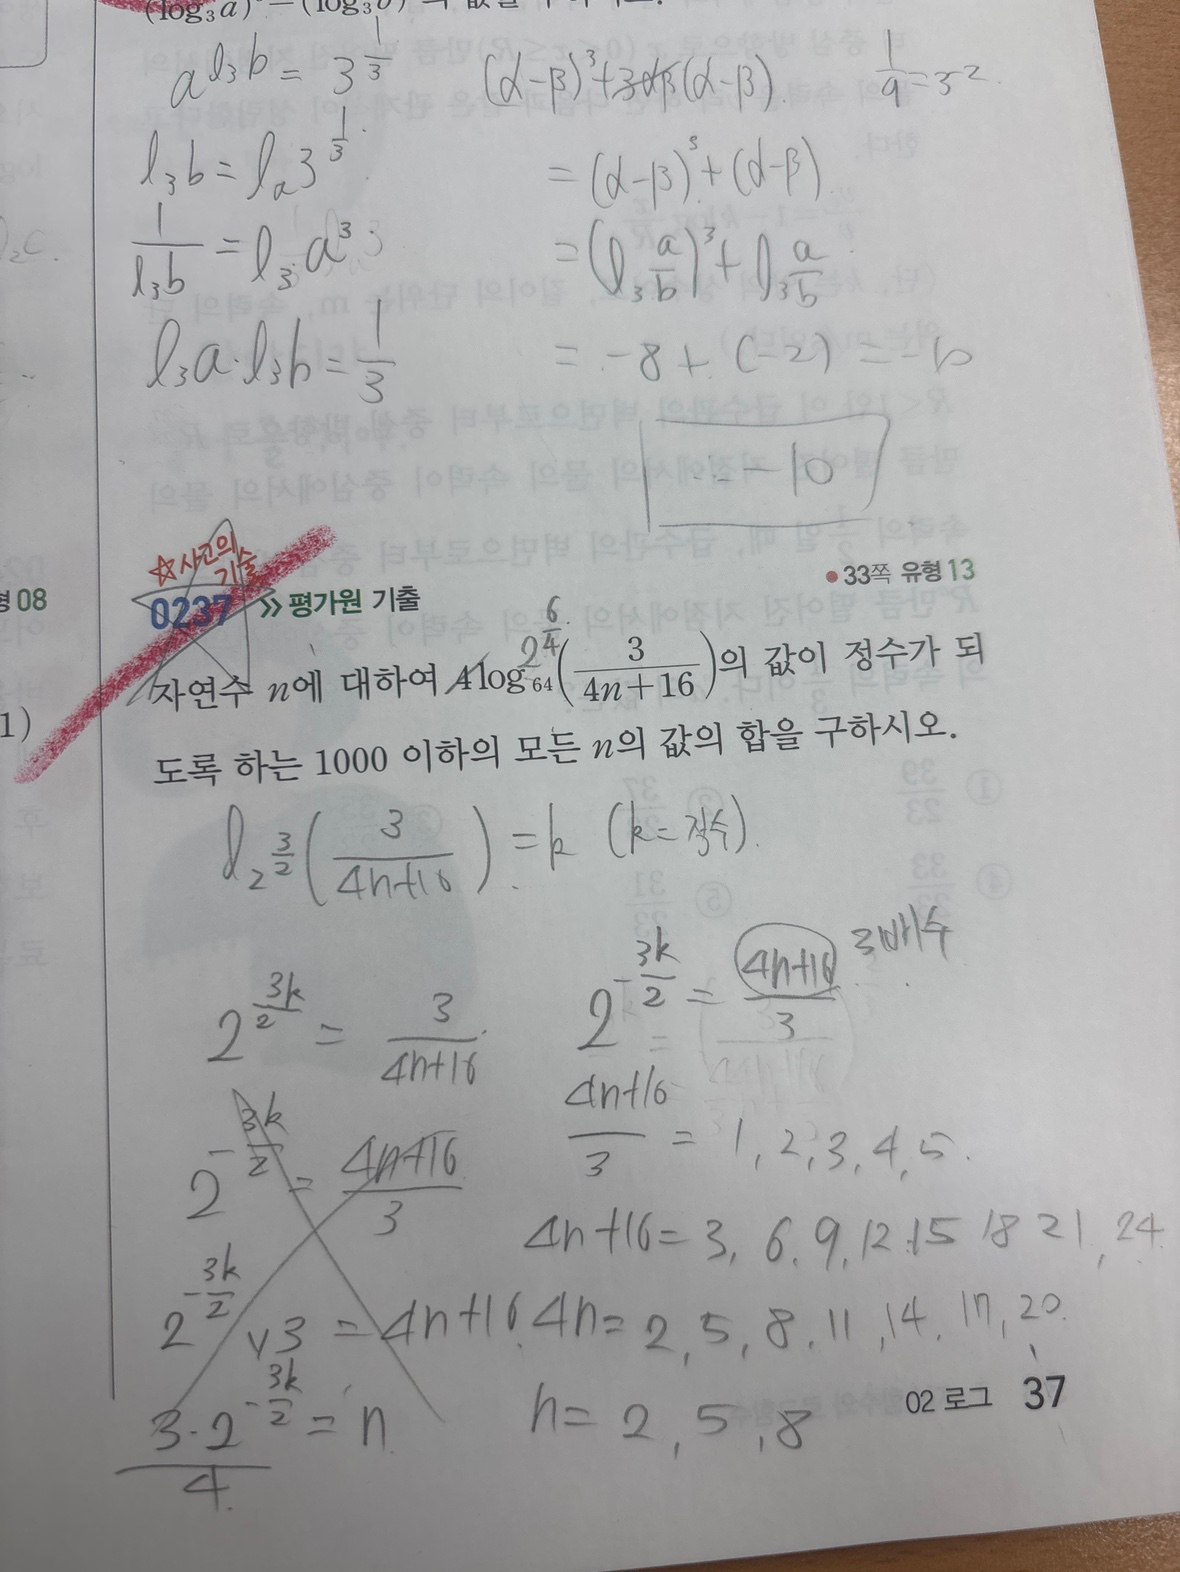 (log₃a)³ − (log₃b)³
a^{l₃b} = 3^{1/3}
(α-β)³+3αβ(α-β)
1/9 = 3⁻²
l₃b = lₐ3^{1/3}
= (α-β)³+(α-β)
1/l₃b = l₃a³
= (l₃ a/b)³ + l₃ a/b
l₃a·l₃b = 1/3
= -8 + (-2) = -10
-10
☆사고의
기술
형 08
0237 » 평가원 기출
• 33쪽 유형 13
2^{6/4}
자연수 n에 대하여 4log₆₄(3/(4n+16))의 값이 정수가 되
도록 하는 1000 이하의 모든 n의 값의 합을 구하시오.
l_{2^{3/2}}(3/(4n+16)) = k (k=정수).
2^{3k/2} = 3/(4n+16)
2^{-3k/2} = (4n+16)/3 3배수
2^{-3k/2} = (4n+16)/3
(4n+16)/3 = 1, 2, 3, 4, 5.
4n+16 = 3, 6, 9, 12 15 18 21, 24
2^{-3k/2} × 3 = 4n+16
4n = 2, 5, 8, 11, 14, 17, 20.
(3·2^{-3k/2})/4 = n
n = 2, 5, 8
02 로그 37